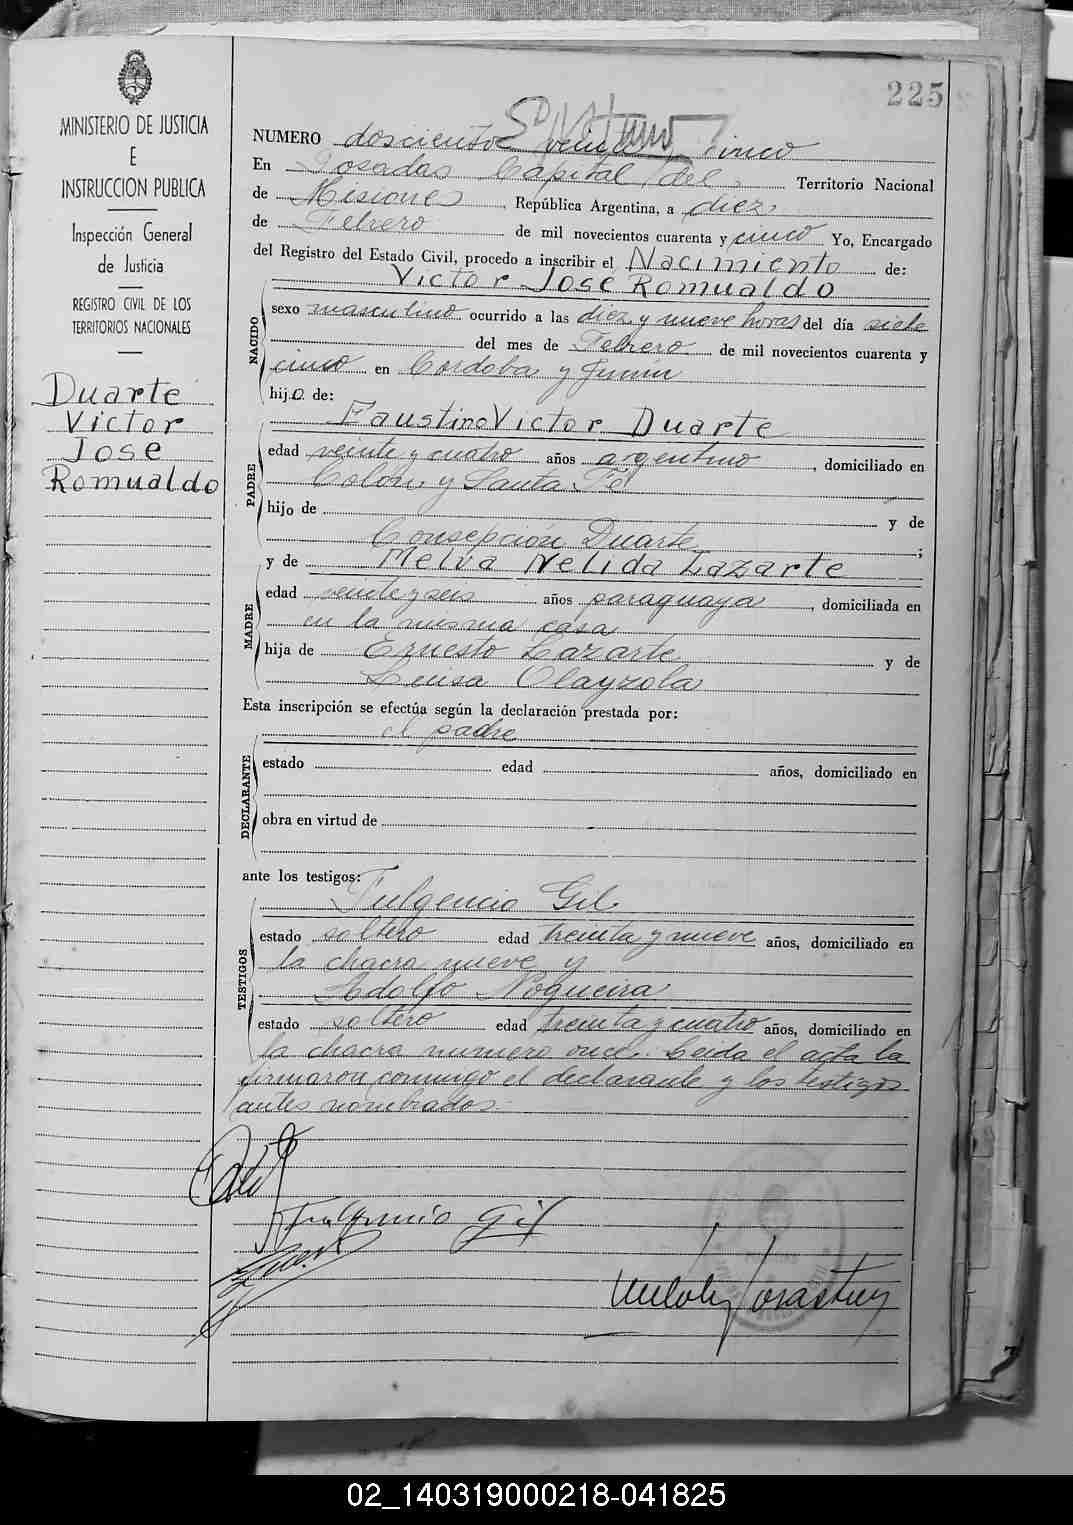 225
MINISTERIO DE JUSTICIA
E
INSTRUCCION PUBLICA
Inspección General
de Justicia
REGISTRO CIVIL DE LOS
TERRITORIOS NACIONALES
Duarte
Victor
Jose
Romualdo
NUMERO doscientos veinte cinco
En Posadas Capital del Territorio Nacional
de Misiones, República Argentina, a diez
de Febrero de mil novecientos cuarenta y cinco Yo, Encargado
del Registro del Estado Civil, procedo a inscribir el Nacimiento de:
Victor José Romualdo
NACIDO
sexo masculino ocurrido a las diez y nueve horas del día siete
del mes de Febrero de mil novecientos cuarenta y
cinco en Cordoba y Junin
hijo de:
Faustino Victor Duarte
PADRE
edad veinte y cuatro años argentino, domiciliado en
Colon y Santa Fé
hijo de y de
Consepción Duarte;
y de Melva Nelida Lazarte
MADRE
edad veinte y seis años paraguaya, domiciliada en
en la misma casa
hija de Ernesto Lazarte y de
Luisa Olayzola
Esta inscripción se efectúa según la declaración prestada por:
el padre
DECLARANTE
estado edad años, domiciliado en
obra en virtud de
ante los testigos:
Fulgencio Gil
TESTIGOS
estado soltero edad treinta y nueve años, domiciliado en
la chacra nueve y
Adolfo Nogueira
estado soltero edad treinta y cuatro años, domiciliado en
la chacra numero once. Leida el acta la
firmaron conmigo el declarante y los testigos
antes nombrados.
Fulgencio Gil
02_140319000218-041825